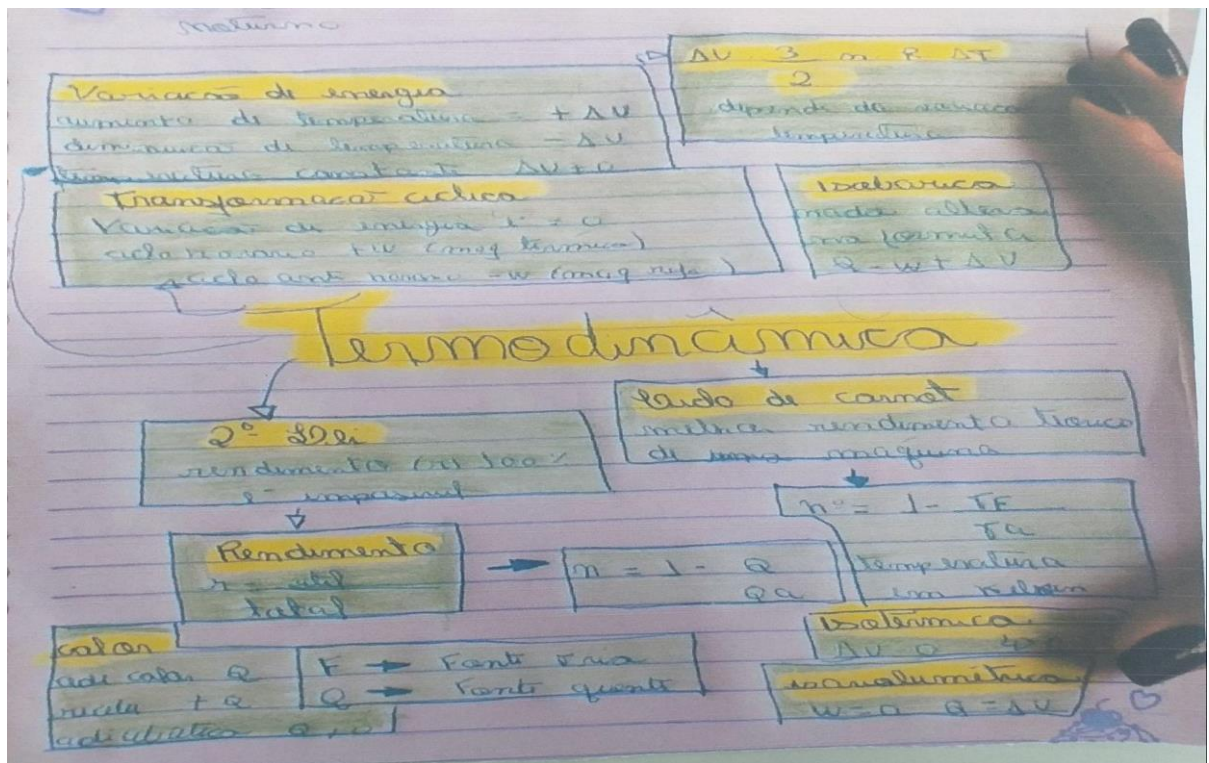 noturno
Variacão de energia
aumento de temperatura = + ΔU
diminuica de temperatura - ΔU
constante ΔU + 0
ΔU 3 n R ΔT
2
depende da
temperatura
Transformacao ciclica
Variacao de energia i = 0
ciclo horario + W (maq termica)
ciclo anti horario - W (maq refr)
Isobarica
nada altera
na formula
Q - W + ΔU
Termodinâmica
2º Lei
rendimento (n) 100%
e impossivel
Ciclo de carnot
melhor rendimento
de uma maquina
Rendimento
n = util
total
n = 1 - Q
Qa
n = 1 - TF
Ta
temperatura
em kelvin
calor
Q
+ Q
adiabatica Q
F → Fonte Fria
Q → Fonte quente
Isotermica
ΔU 0
isovolumétrica
W = 0 Q = ΔU